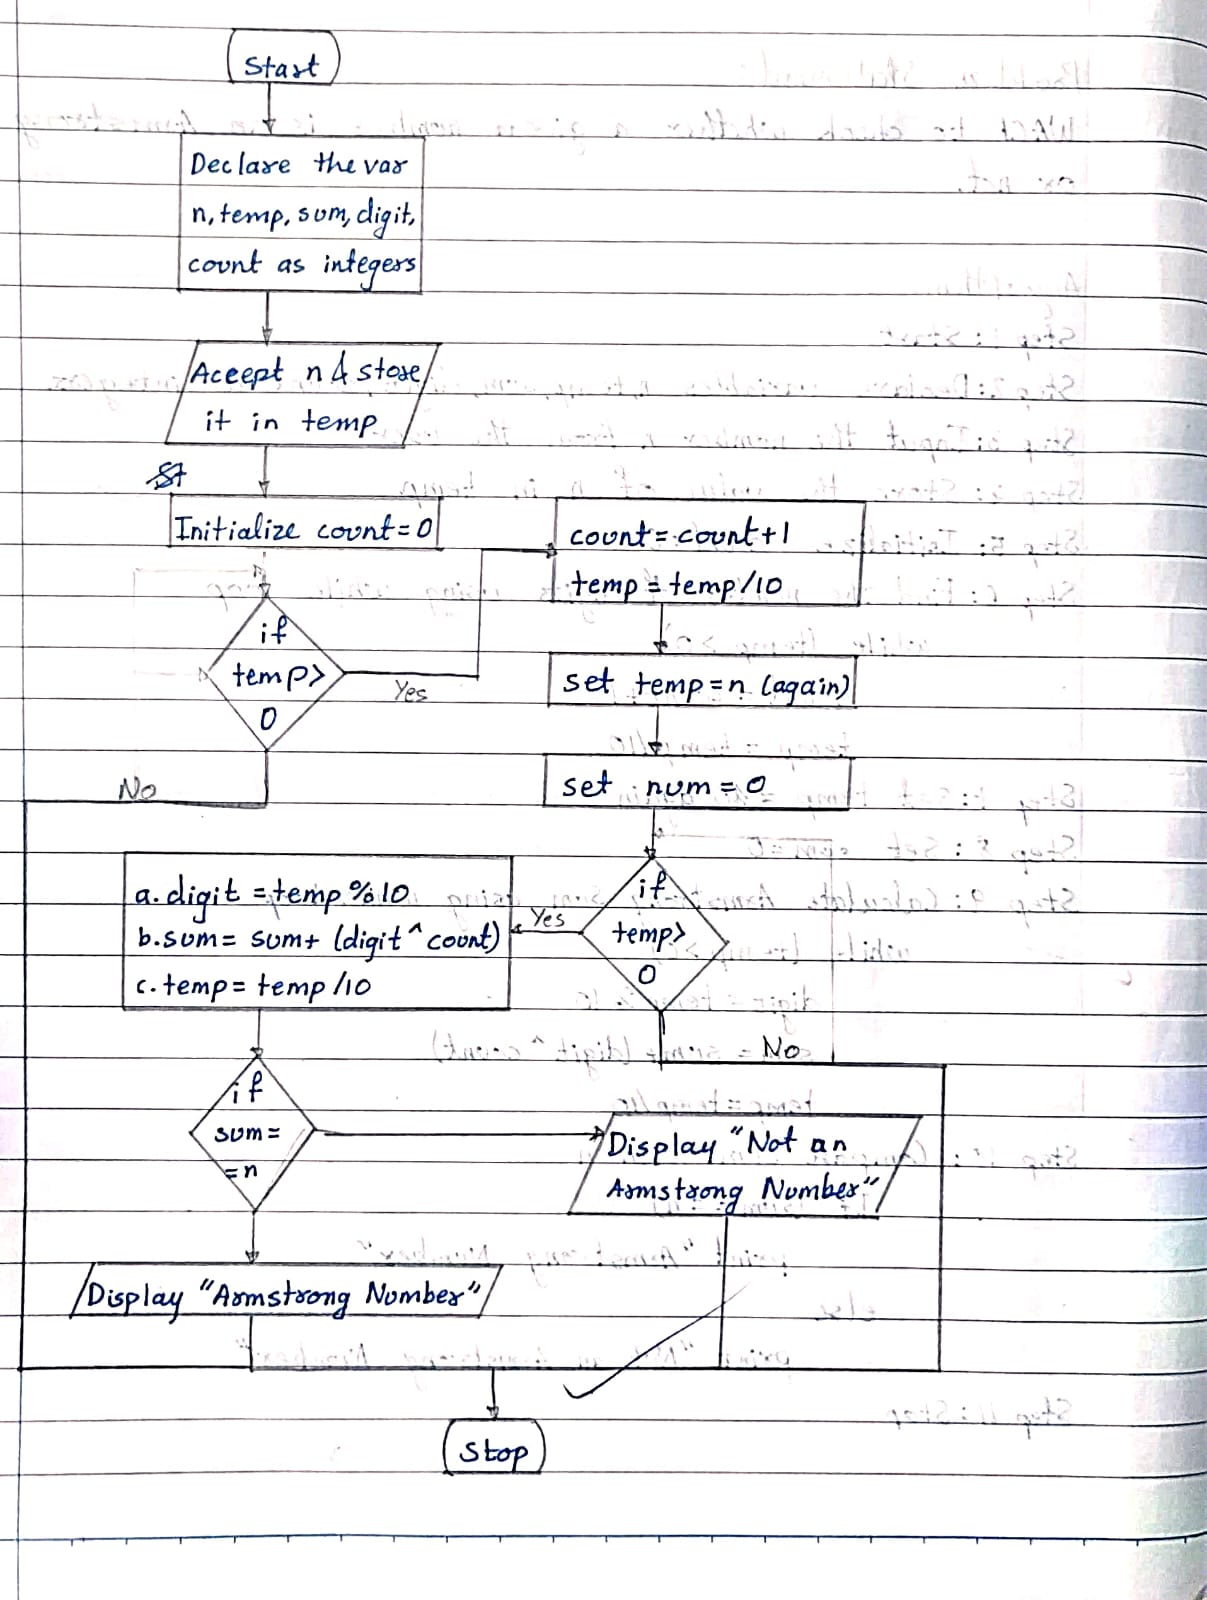 Start
Declare the var
n, temp, sum, digit,
count as integers
Accept n & store
it in temp
St
Initialize count=0
if
temp>
0
Yes
No
count=count+1
temp=temp/10
set temp=n (again)
set num=0
if
temp>
0
Yes
No
a. digit =temp%10
b. sum= sum+ (digit^count)
c. temp= temp/10
if
sum=
=n
Display "Not an
Armstrong Number"
Display "Armstrong Number"
Stop